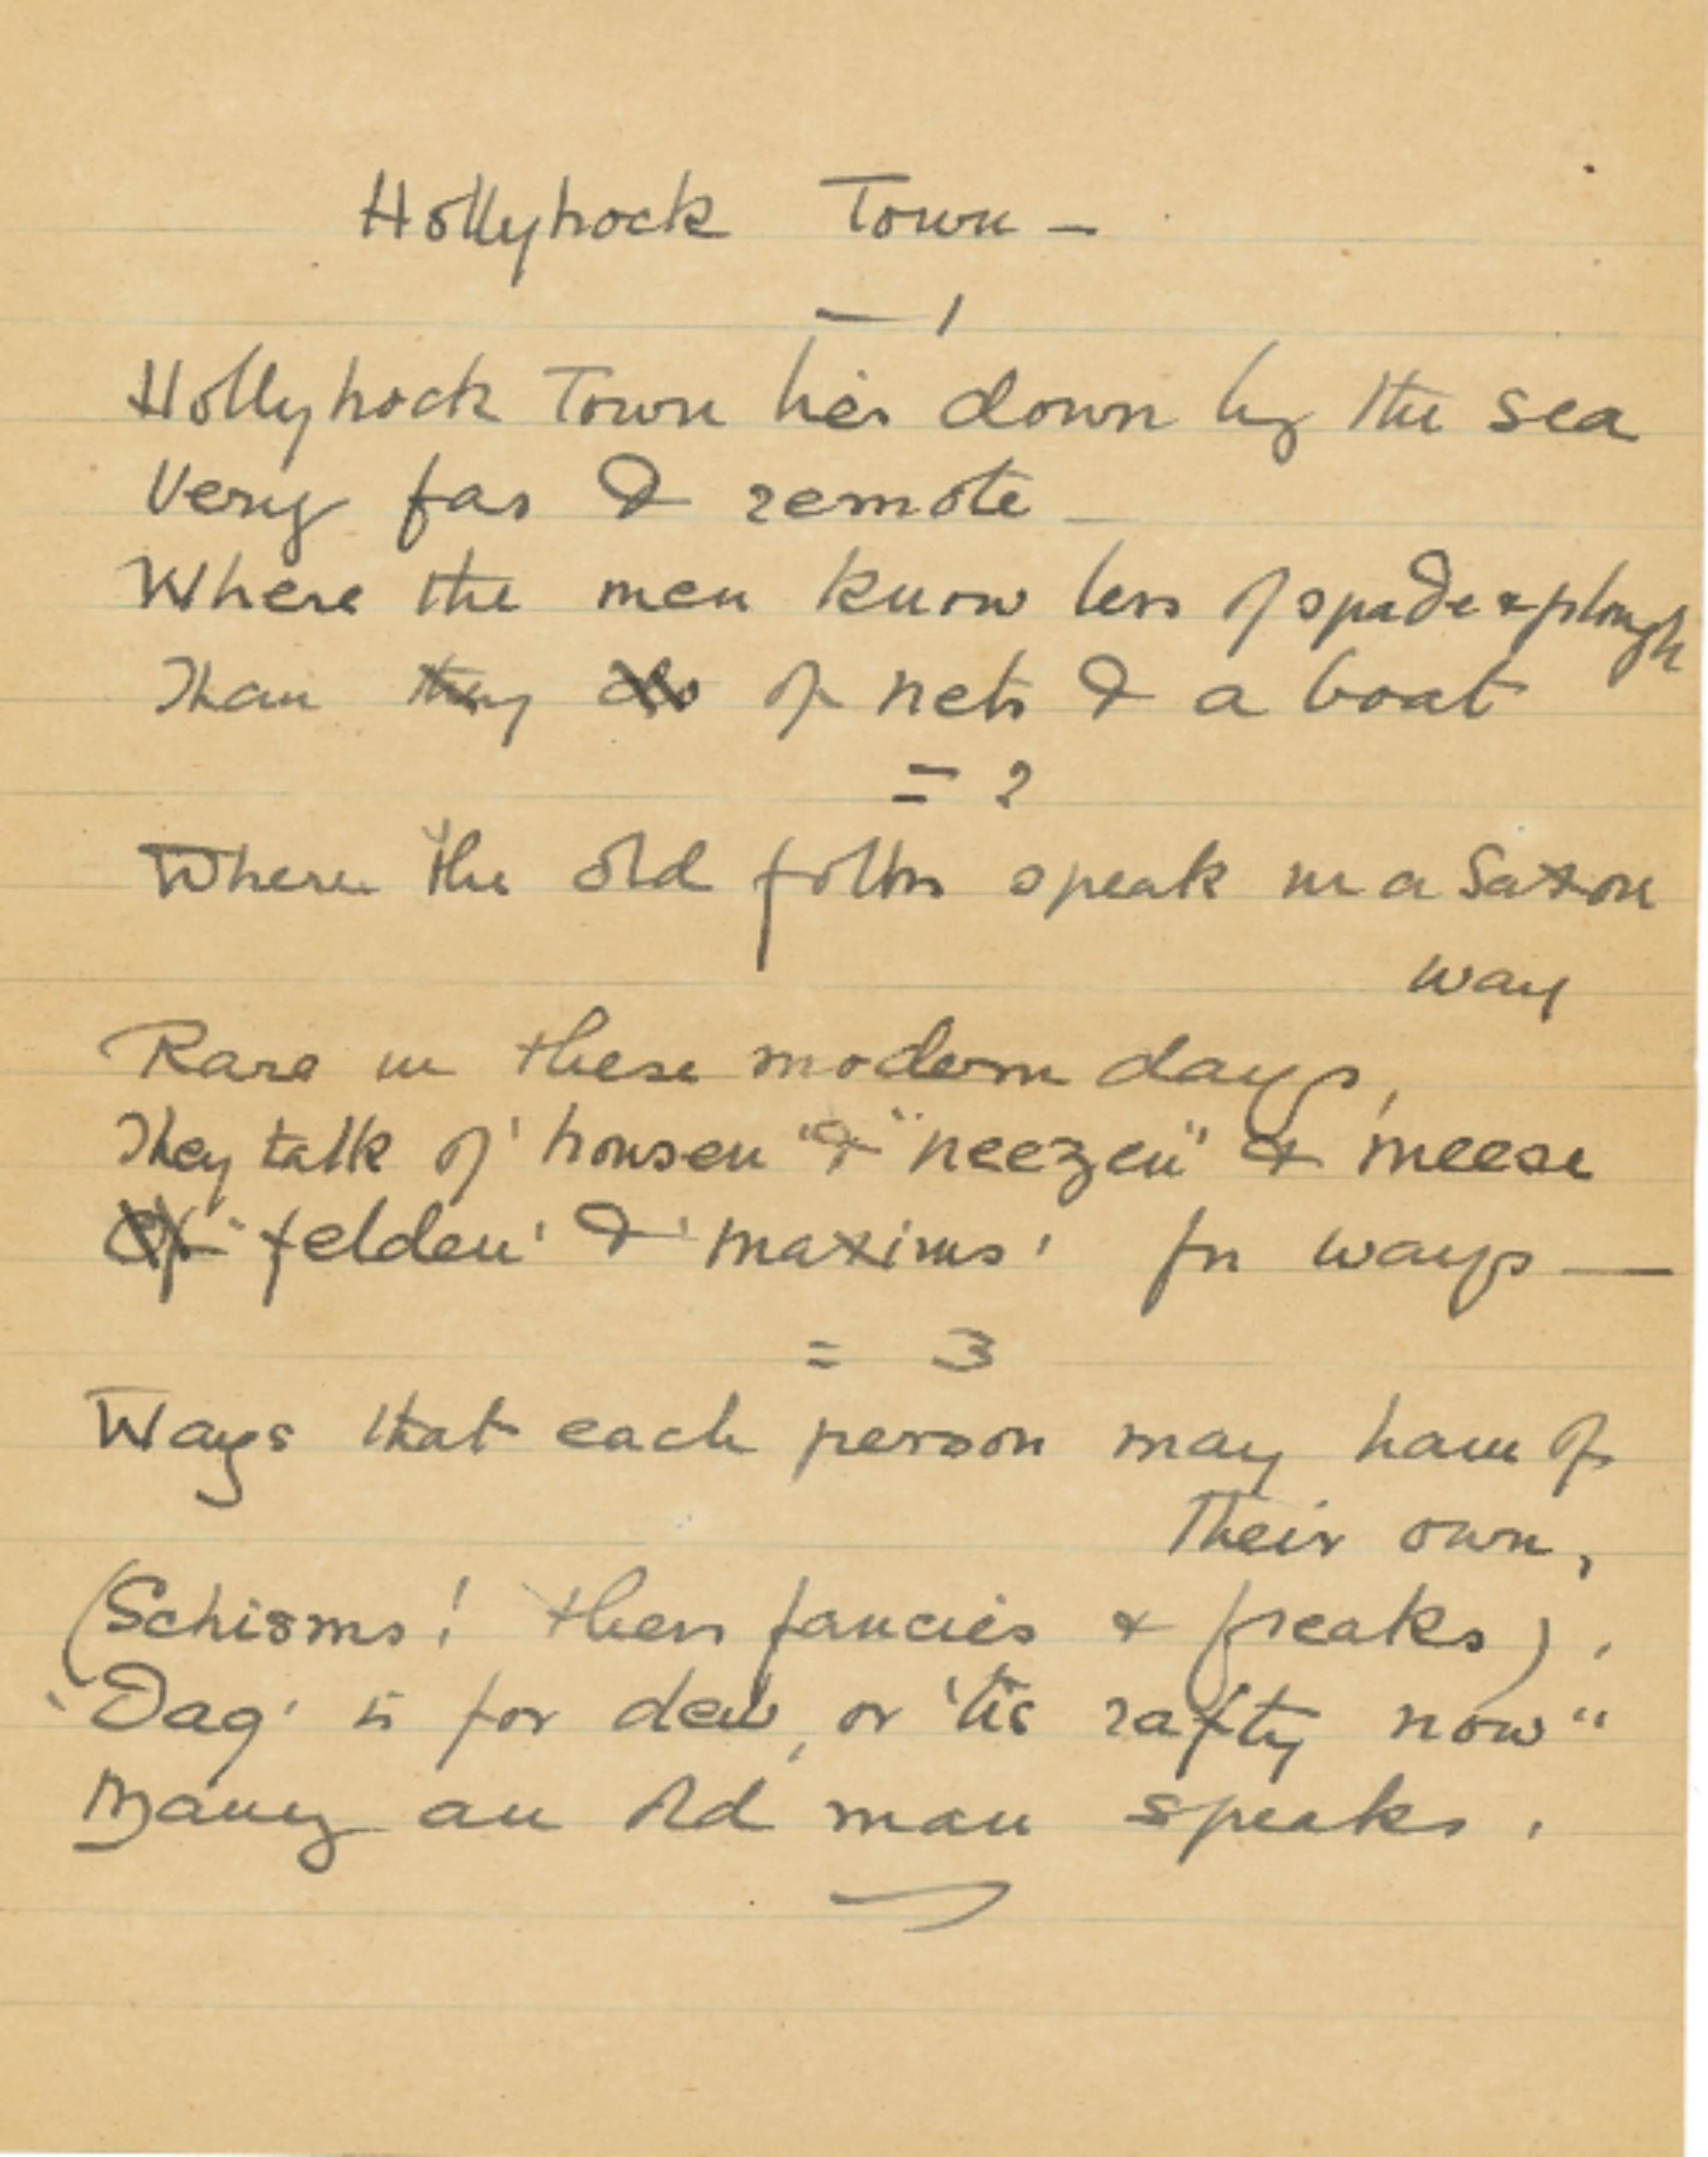 Hollyhock Town —
— 1
Hollyhock Town lies down by the sea
Very far & remote
Where the men know less of spade & plough
Than they do of nets & a boat
= 2
Where the old folks speak in a Saxon
way
Rare in these modern days,
They talk of 'housen" & "neezen" & 'meese
Of 'felden' & 'maxims' for ways —
= 3
Ways that each person may have of
Their own,
(Schisms! then fancies & freaks).
'Dag' is for dew, or 'tis rafty now"
Many an old man speaks.